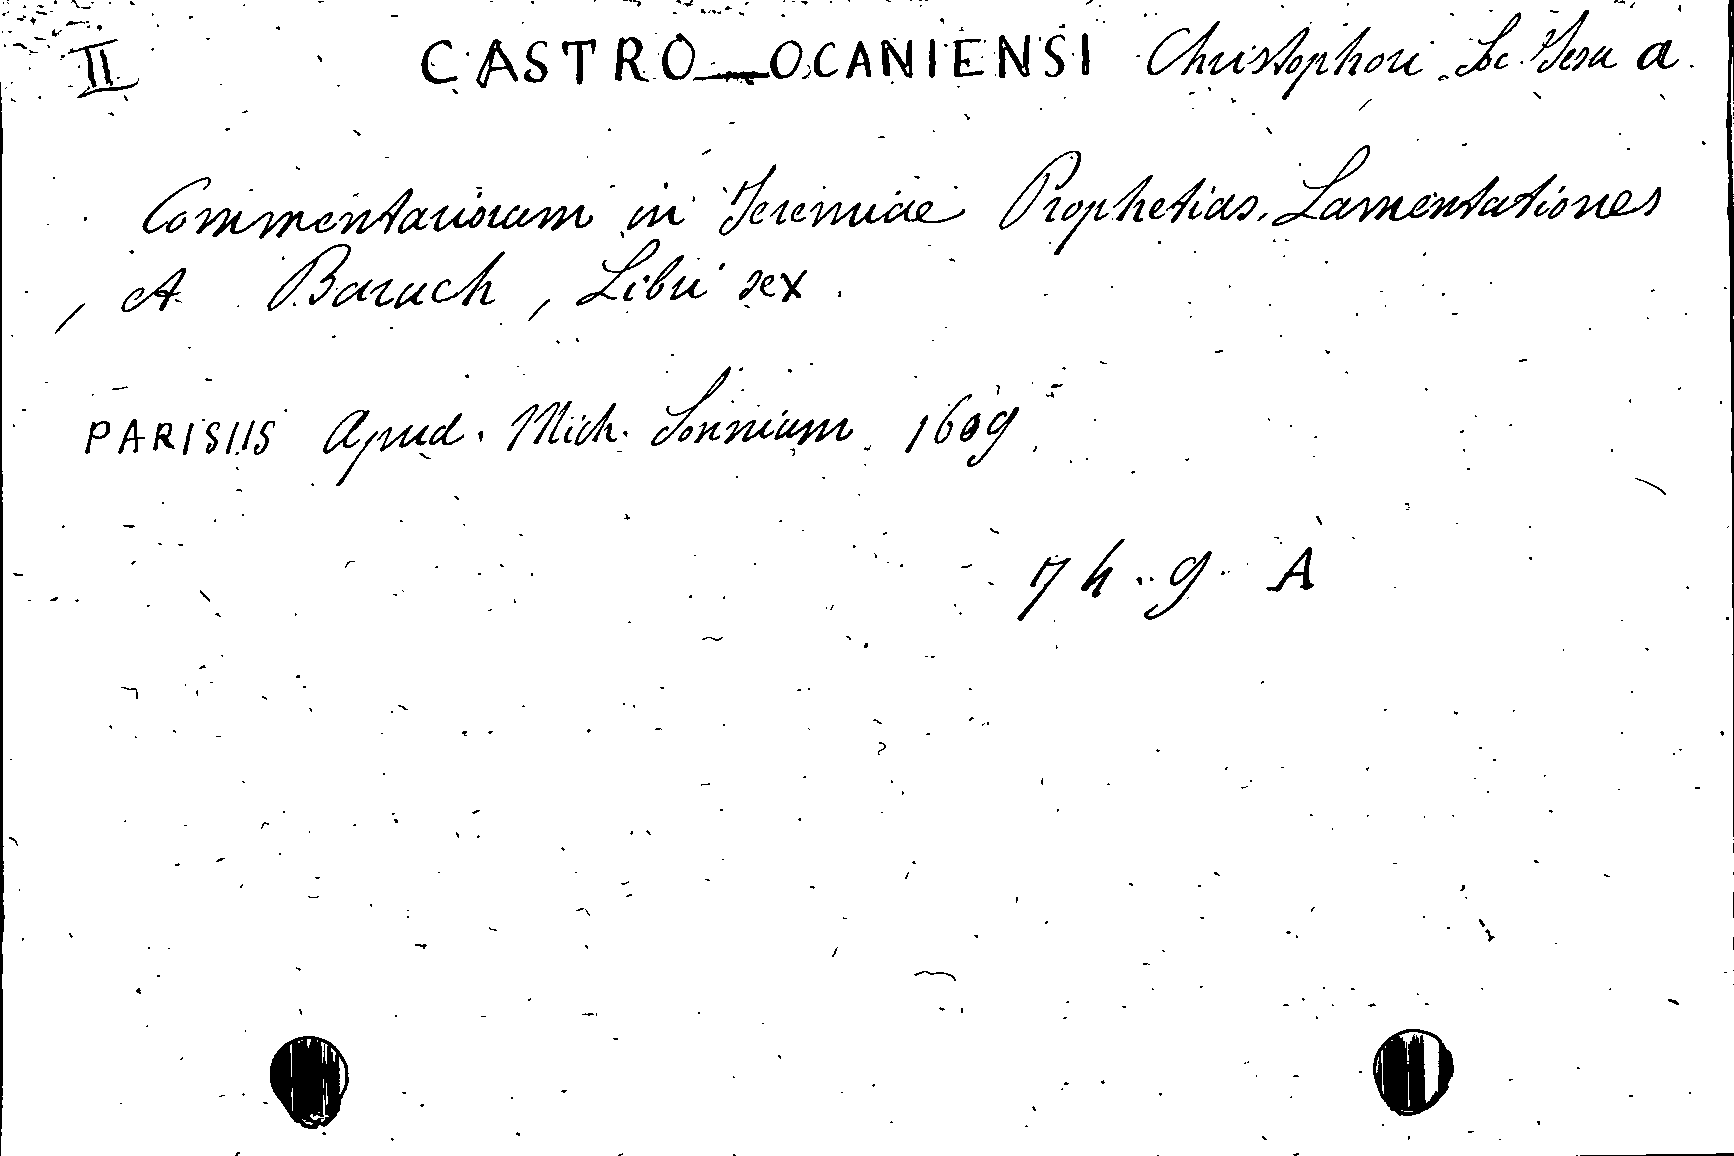 II CASTRO_OCANIENSI Christophori Soc. Jesu a.
Commentariorum in Jeremiae Prophetias, Lamentationes
, et Baruch, Libri sex.
PARISIIS Apud. Mich. Sonnium 1609
74.9 A